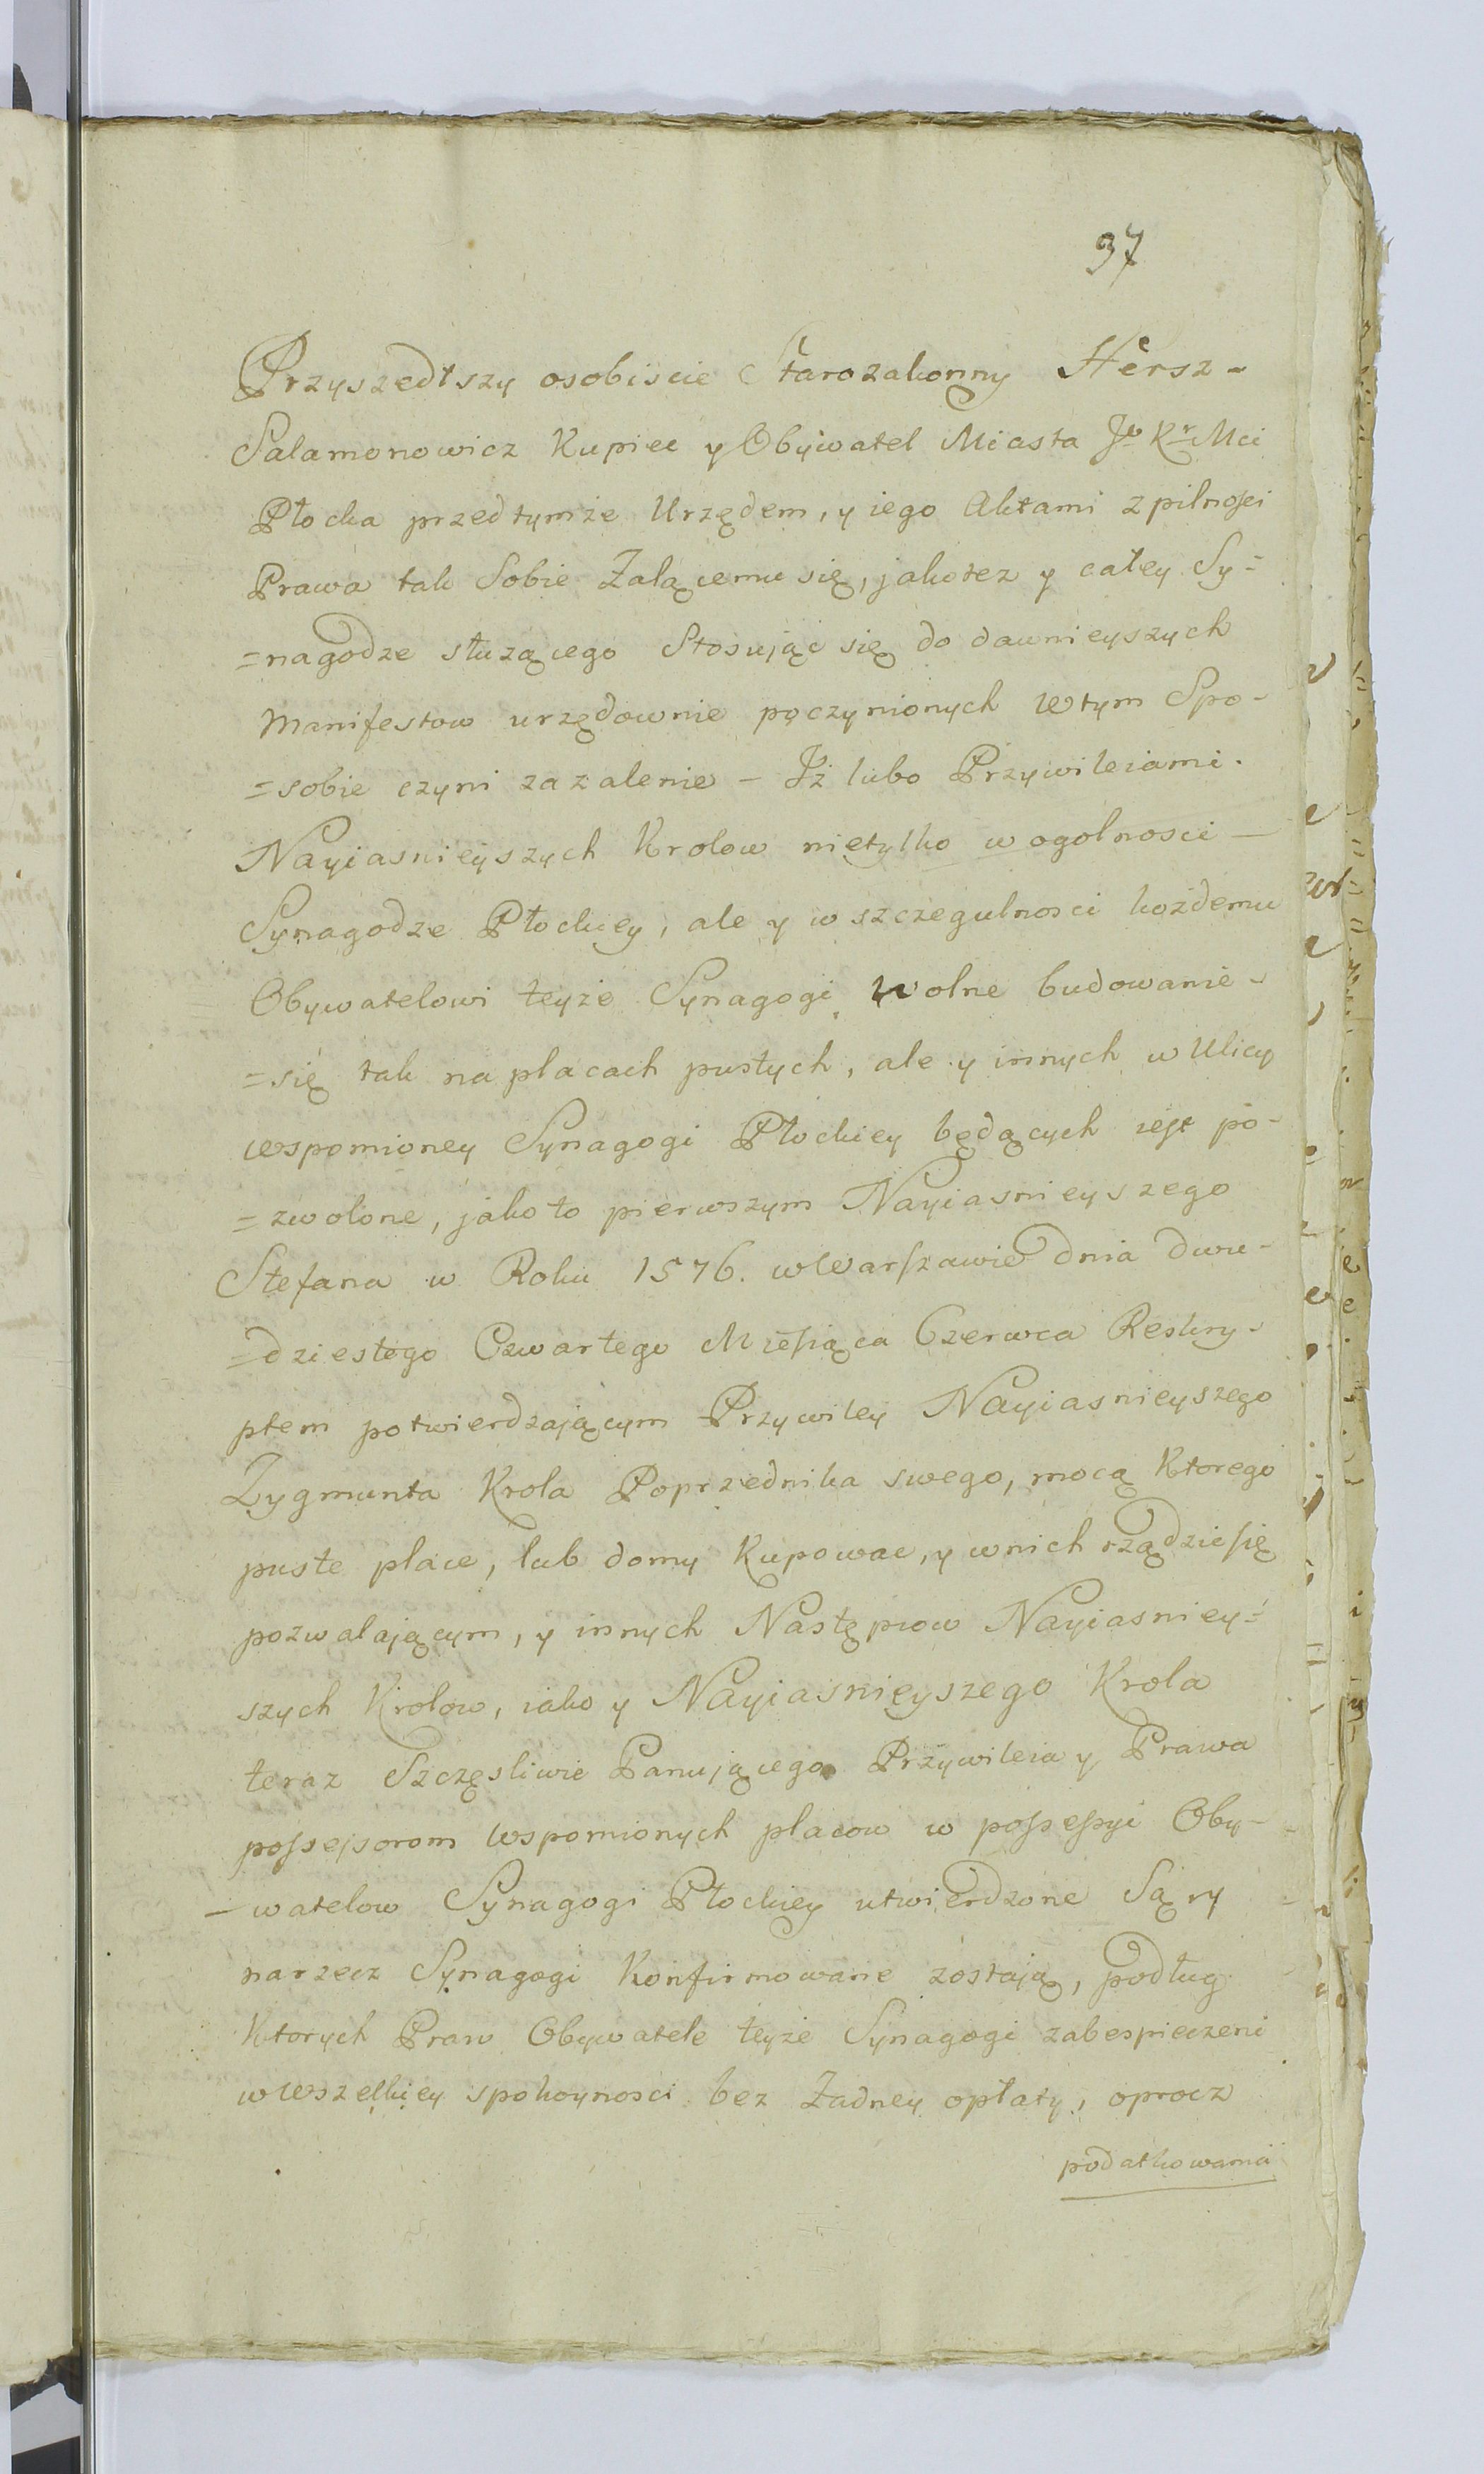 37
Przyszedłszy osobiscie Starozakonny Hersz-
Salamonowicz Kupiec y Obywatel Miasta Jo Kr Mci
Płocka przed tymże Urzędem, y iego Aktami z pilnosci
Prawa tak Sobie Zalącemu się, jakotez y całey Sy=
=nagodze służącego Stosując się do dawnieyszych
Manifestow urzędownie poczynionych w tym Spo-
=sobie czyni zazalenie - Jż lubo Przywileiami.
Nayiasnieyszych Krolow nietylko w ogolnosci -
Synagodze Płockiey, ale y w szczegulnosci kożdemu
Obywatelowi teyże Synagogi wolne budowanie-
=się tak na placach pustych, ale y innych w Ulicy
wspomioney Synagogi Płockiey będących iest po-
=zwolone, jako to pierwszym Nayiasnieyszego
Stefana w Roku 1576. w Warszawie dnia dwu-
=dziestego Czwartego Miesiąca Czerwca Reskry-
ptem potwierdzającym Przywiley Nayiasnieyszego
Zygmunta Krola Poprzednika swego, mocą Ktorego
puste place, lub domy Kupowac, y w nich rządzic się
pozwalającym, y innych Następcow Nayiasniey=
szych Krolow, iako y Nayiasnieyszego Krola
teraz Szczęsliwie Panującego Przywileia y Prawa
possessorom wspomionych placow w possessyi Oby-
-watelow Synagogi Płockiey utwierdzone Są, y
narzecz Synagogi Konfirmowane zostają, podług
Ktorych Praw Obywatele teyże Synagogi zabespieczeni
w wszelkiey spokoynosci bez Żadney opłaty, oprocz
podatkowania